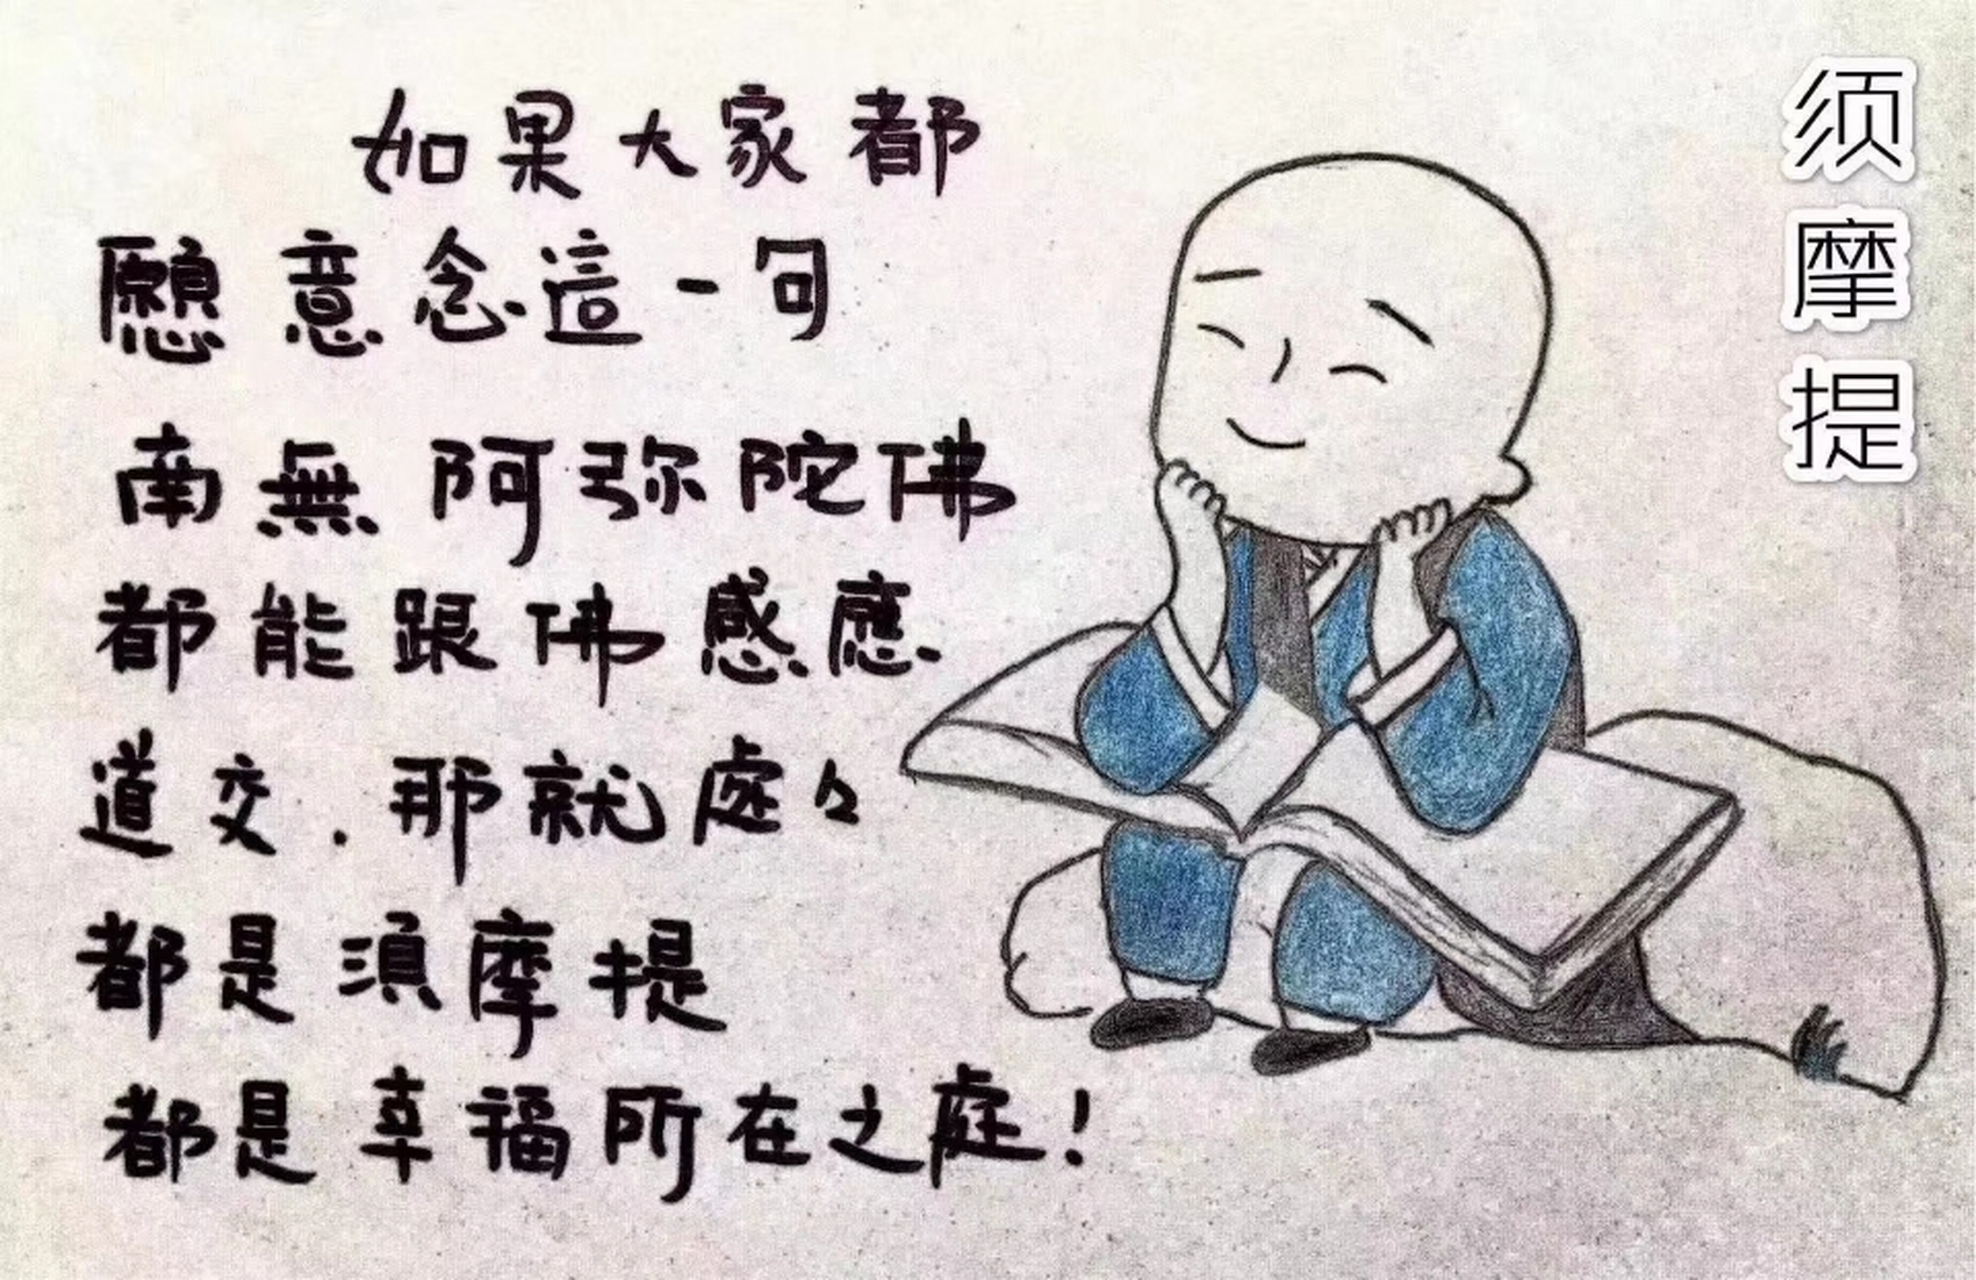 如果大家都
願意念這一句
南無阿弥陀佛
都能跟佛感應
道交．那就處々
都是須摩提
都是幸福所在之處！
须摩提